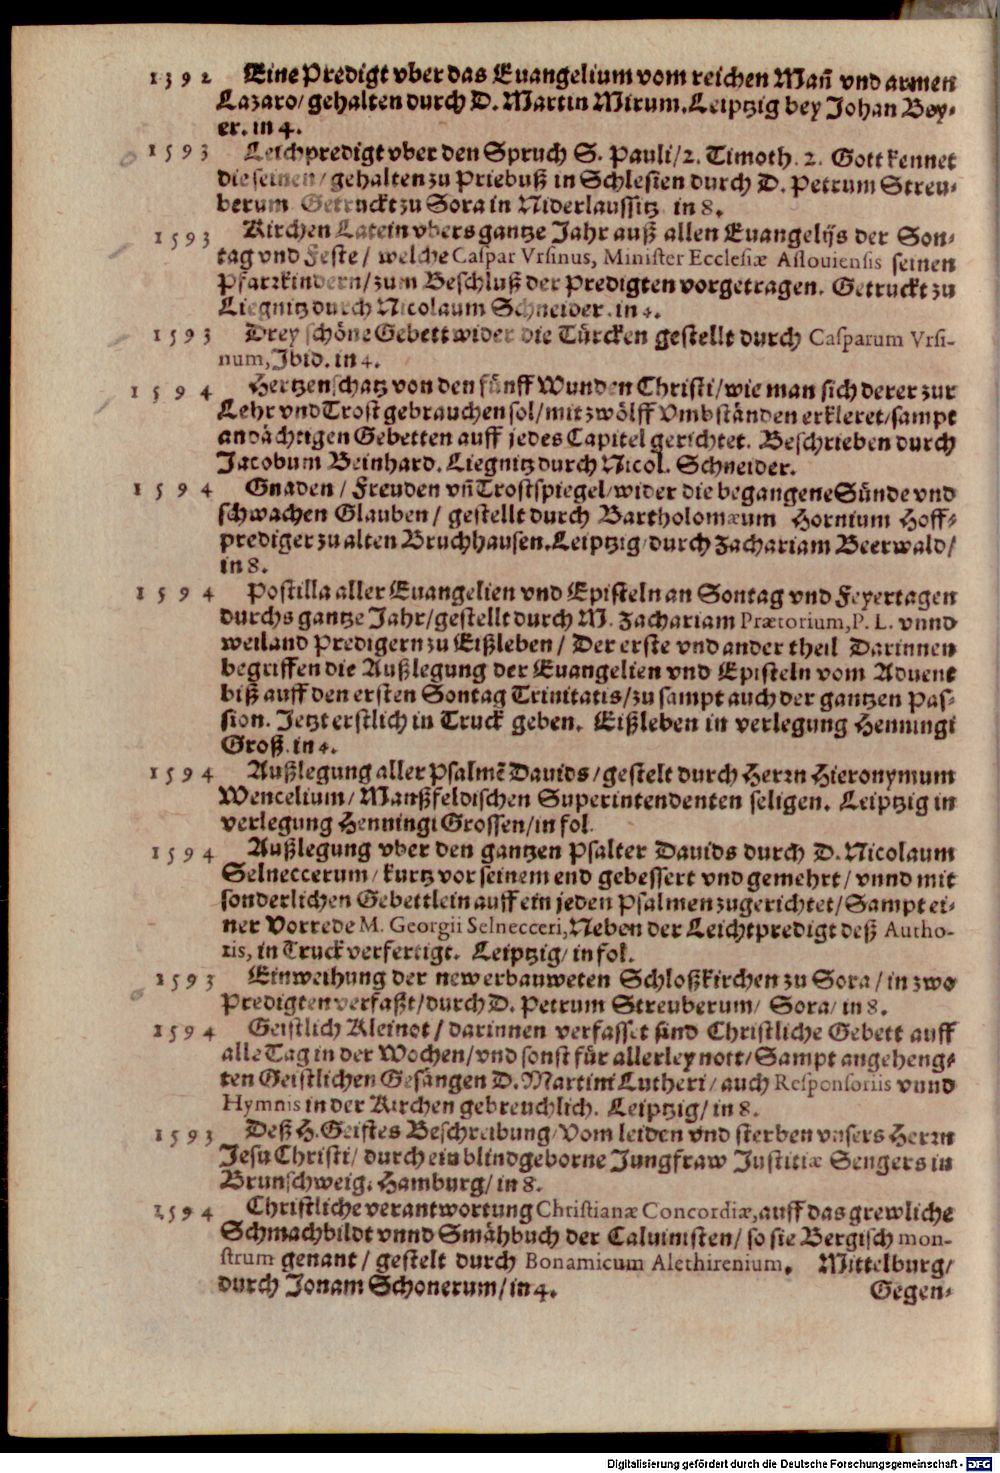 1592 Eine Predigt vber das Euangelium vom reichen Mañ vnd armen
Lazaro/ gehalten durch D. Martin Mirum. Leiptzig bey Johan Bey-
er. in 4.
1593 Leichpredigt vber den Spruch S. Pauli/ 2. Timoth. 2. Gott kennet
die seinen/ gehalten zu Priebuß in Schlesien durch D. Petrum Streu-
berum Getruckt zu Sora in Niderlaussitz in 8.
1593 Kirchen Latein vbers gantze Jahr auß allen Euangelijs der Son-
tag vnd Feste/ welche Caspar Vrsinus, Minister Ecclesiæ Aslouiensis seinen
Pfarrkindern/ zum Beschluß der Predigten vorgetragen. Getruckt zu
Liegnitz durch Nicolaum Schneider. in 4.
1593 Drey schöne Gebett wider die Türcken gestellt durch Casparum Vrsi-
num, Ibid. in 4.
1594 Hertzenschatz von den fünff Wunden Christi/ wie man sich derer zur
Lehr vnd Trost gebrauchen sol/ mit zwölff Vmbständen erkleret/ sampt
andächtigen Gebetten auff jedes Capitel gerichtet. Beschrieben durch
Jacobum Beinhard. Liegnitz durch Nicol. Schneider.
1594 Gnaden/ Freuden vñ Trostspiegel/ wider die begangene Sünde vnd
schwachen Glauben/ gestellt durch Bartholomæum Hornium Hoff-
prediger zu alten Bruchhausen. Leiptzig/ durch Zachariam Beerwald/
in 8.
1594 Postilla aller Euangelien vnd Episteln an Sontag vnd Feyertagen
durchs gantze Jahr/ gestellt durch M. Zachariam Prætorium, P. L. vnnd
weiland Predigern zu Eißleben/ Der erste vnd ander theil Darinnen
begriffen die Außlegung der Euangelien vnd Episteln vom Aduent
biß auff den ersten Sontag Trinitatis/ zu sampt auch der gantzen Pas-
sion. Jetzt erstlich in Truck geben. Eißleben in verlegung Henningi
Groß. in 4.
1594 Außlegung aller Psalmē Dauids/ gestelt durch Herrn Hieronymum
Wencelium/ Manßfeldischen Superintendenten seligen. Leiptzig in
verlegung Henningi Grossen/ in fol.
1594 Außlegung vber den gantzen Psalter Dauids durch D. Nicolaum
Selneccerum/ kurtz vor seinem end gebessert vnd gemehrt/ vnnd mit
sonderlichen Gebettlein auff ein jeden Psalmen zugerichtet/ Sampt ei-
ner Vorrede M. Georgii Selnecceri, Neben der Leichtpredigt deß Autho-
ris, in Truck verfertigt. Leiptzig/ in fol.
1593 Einweihung der new erbauweten Schloßkirchen zu Sora/ in zwo
Predigten verfaßt/ durch D. Petrum Streuberum/ Sora/ in 8.
1594 Geistlich Kleinot/ darinnen verfasset sind Christliche Gebett auff
alle Tag in der Wochen/ vnd sonst für allerley nott/ Sampt angeheng-
ten Geistlichen Gesängen D. Martini Lutheri/ auch Responsoriis vnnd
Hymnis in der Kirchen gebreuchlich. Leiptzig/ in 8.
1593 Deß H. Geistes Beschreibung/ Vom leiden vnd sterben vnsers Herrn
Jesu Christi/ durch ein blindgeborne Jungfraw Justitiæ Sengers in
Brunschweig. Hamburg/ in 8.
1594 Christliche verantwortung Christianæ Concordiæ, auff das grewliche
Schmachbildt vnnd Smähbuch der Caluinisten/ so sie Bergisch mon-
strum genant/ gestelt durch Bonamicum Alethirenium. Mittelburg/
durch Jonam Schonerum/ in 4.
Gegen-
Digitalisierung gefördert durch die Deutsche Forschungsgemeinschaft - DFG